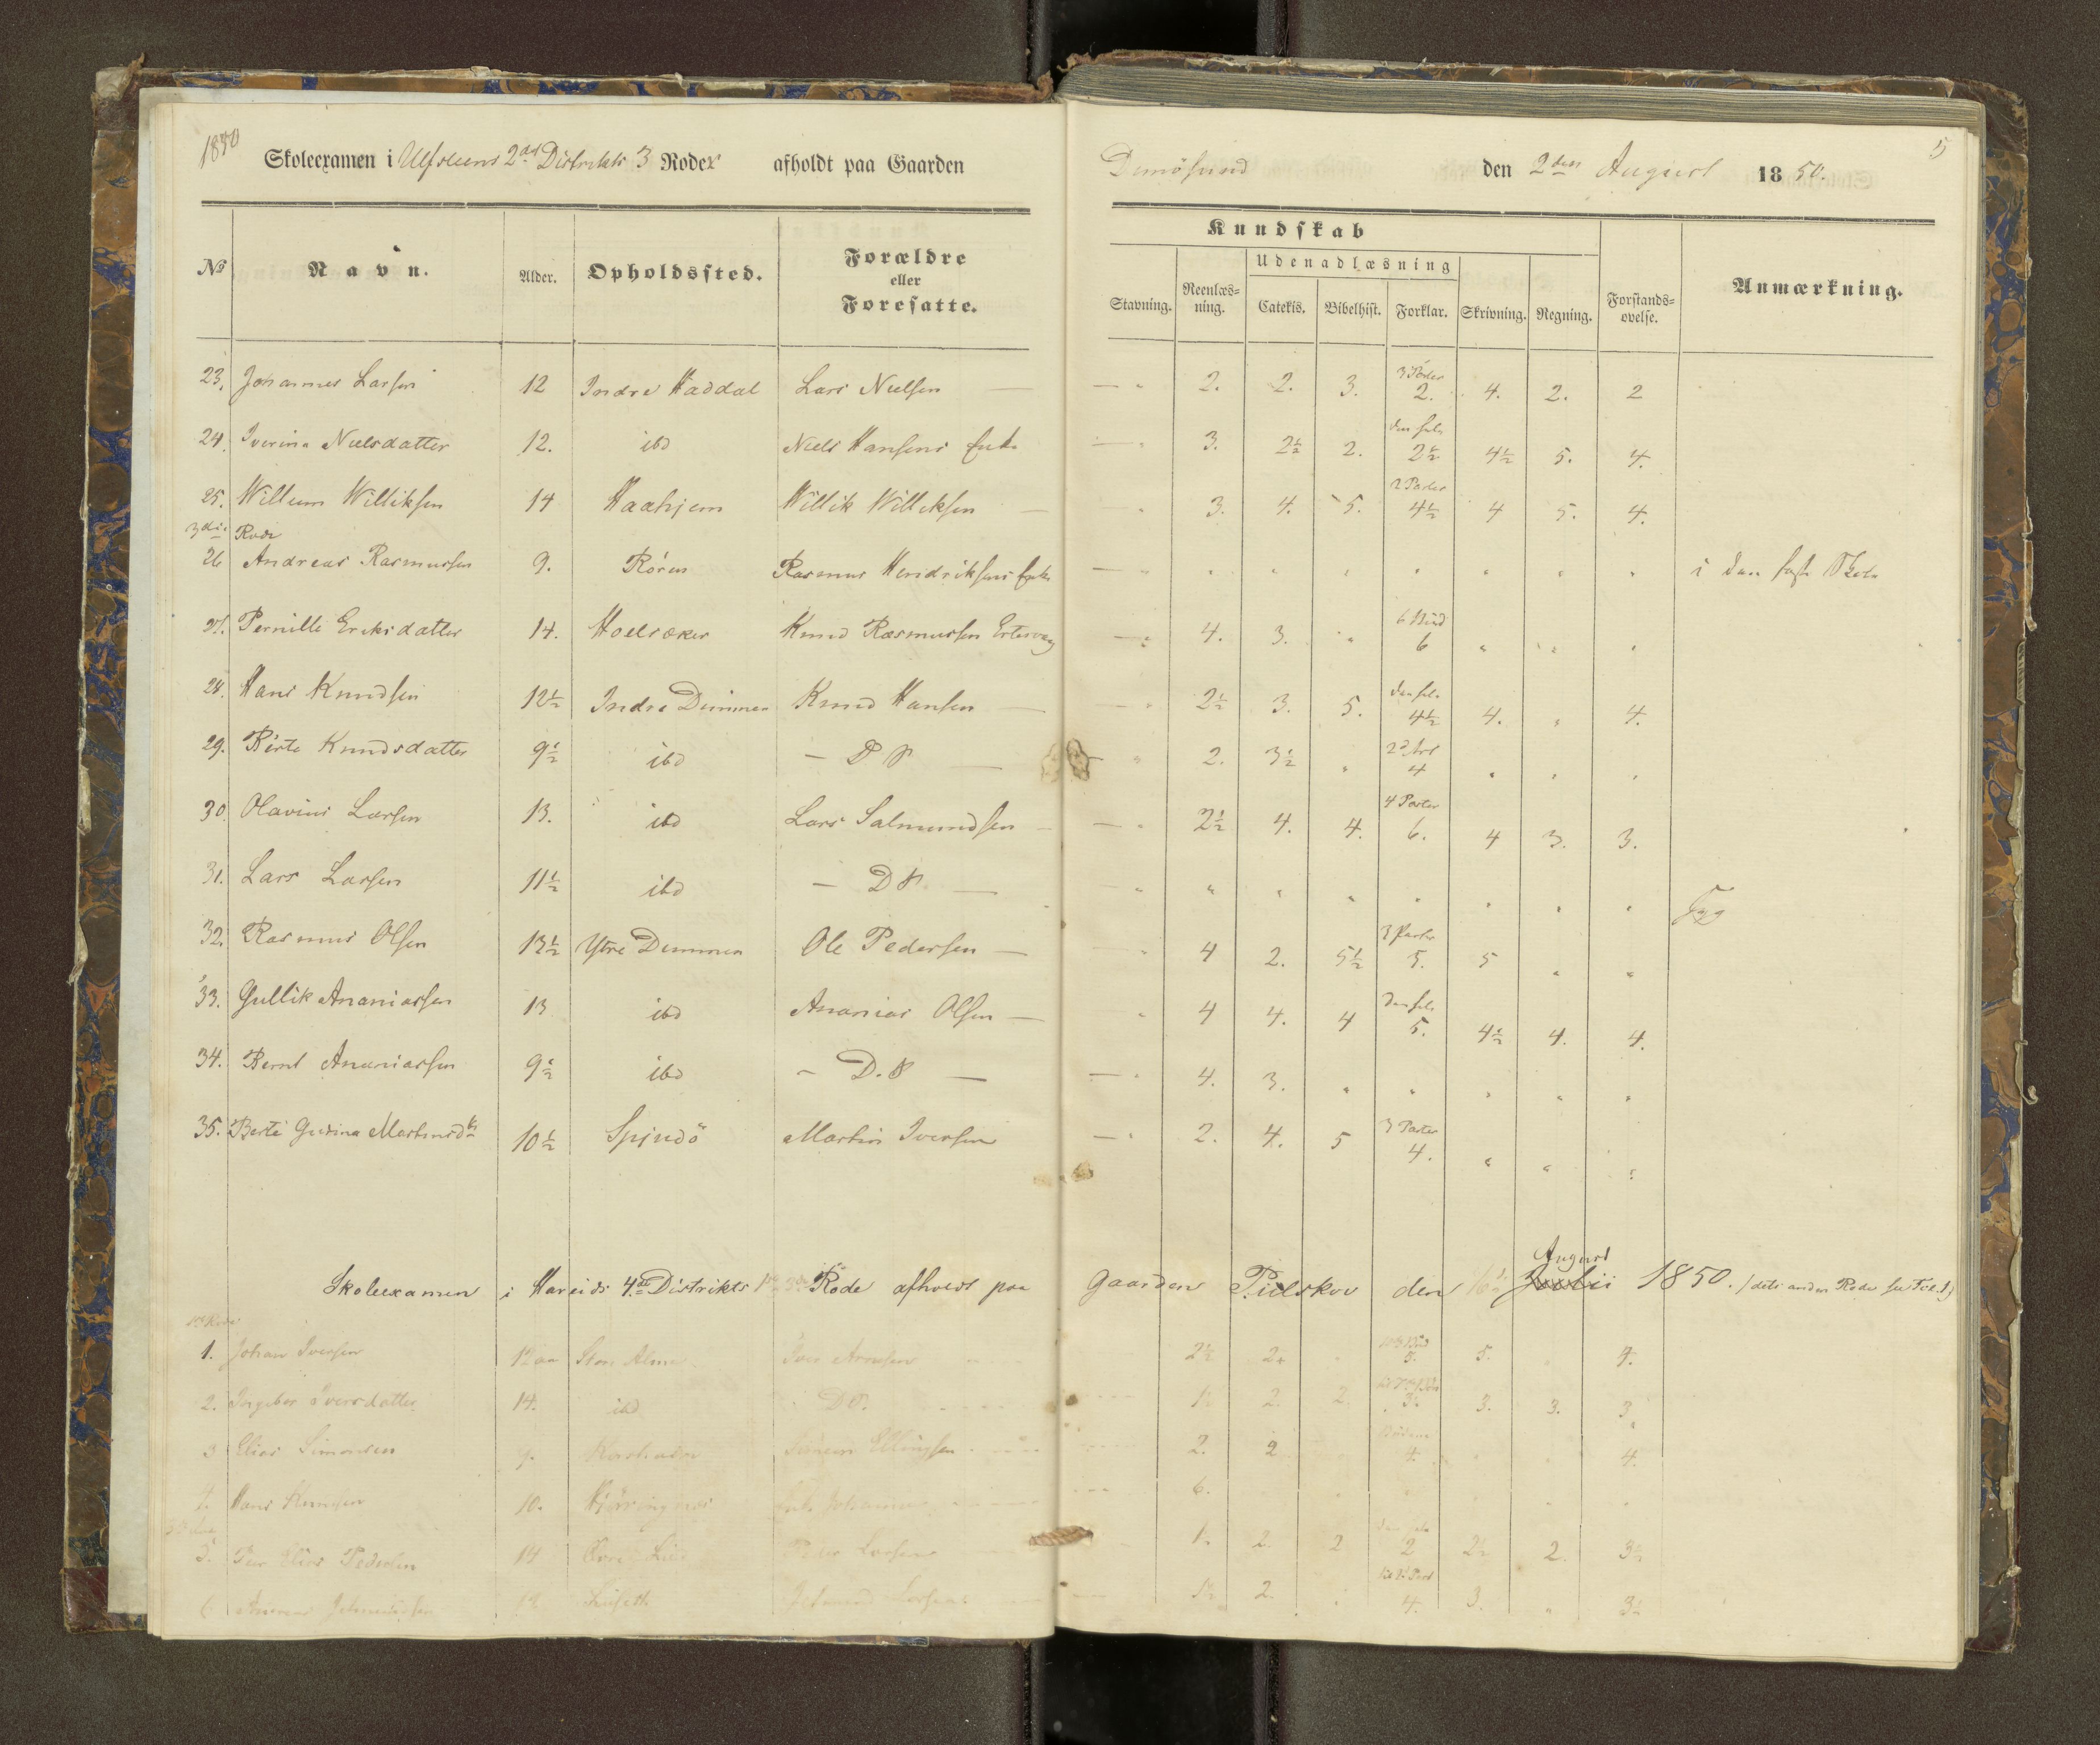 1850
Skoleexamen i Ulfsteens 2det Distrikts 3 Roder afholdt paa Gaarden Dimösund den 2den August 1850.
5
No Navn. Alder. Opholdssted. Forældre eller Foresatte. Stavning. Reenlæs-ning. Catekis. Bibelhist. Forklar. Skrivning. Regning. Forstands-ovelse. Anmærkning.
Kundskab
Udenadlæsning
23. Johannes Larsen 12 Indre Haddal Lars Nielsen — " 2. 2. 3. 3 Parter 2. 4. 2. 2
24. Iverina Nielsdatter 12. ibd Niels Hansens Enke — " 3. 2½ 2. den hele 2½ 4½ 5. 4.
25. Willum Williksen 14 Haahjem Willik Williksen — " 3. 4. 5. 2 Parter 4½ 4 5. 4.
3die Rode
26 Andreas Rasmussen 9. Rören Rasmus Hendriksens Enke — " " " " " " " " i den faste Skole
27. Pernille Eriksdatter 14. Hoelsæker Knud Rasmussen — " 4. 3. " 6 Bud 6 " " "
28. Hans Knudsen 12½ Indre Dimmen Knud Hansen — " 2½ 3. 5. den hele 4½ 4. " 4.
29. Berte Knudsdatter 9½ ibd — D o — " 2. 3½ " 2 4 " " "
30. Olavius Larsen 13. ibd Lars Salmundsen — " 2½ 4. 4. 4 Parter 6. 4 3. 3.
31. Lars Larsen 11½ ibd — D o — " " " " " " " " syg
32. Rasmus Olsen 13½ Ytre Dimmen Ole Pedersen — " 4 2. 5½ 3 Parter 5. 5 " "
33. Gullik Ananiassen 13 ibd Ananias Olsen — " 4 4. 4 den hele 5. 4½ 4. 4.
34. Bernt Ananiassen 9½ ibd — D. o — " 4. 3. " " " " "
35. Berte Gurina Martinsdtr 10½ Spjudö Martin Iversen — " 2. 4. 5 3 Parter 4. " " "
Skoleexamen i Hareids 4de Distrikts Rode afholdt paa Gaarden Pilskov den 16 Julii August 1850. (dets anden Rode see Fol. 1)
1ste Rode
1. Johan Iversen 12 Alme Iver Arnesen 2½ 2. Bud 5. 5. 4.
2. Ingebor Iversdatter 14. ibd Do. 1½ 2. 2 3. 3. 3. 3
3 Elias Simonsen 9. Simon Ellingsen 2. 2 4. 4.
4. Hans Knudsen 10. Hjöringnes 6.
3die
5. Peer Elias Pedersen 14 Liid Peder Larsen 1. 2. 2 den hele 2 2½ 2. 3½
6 12 1½ 2. 4. 3. 3½